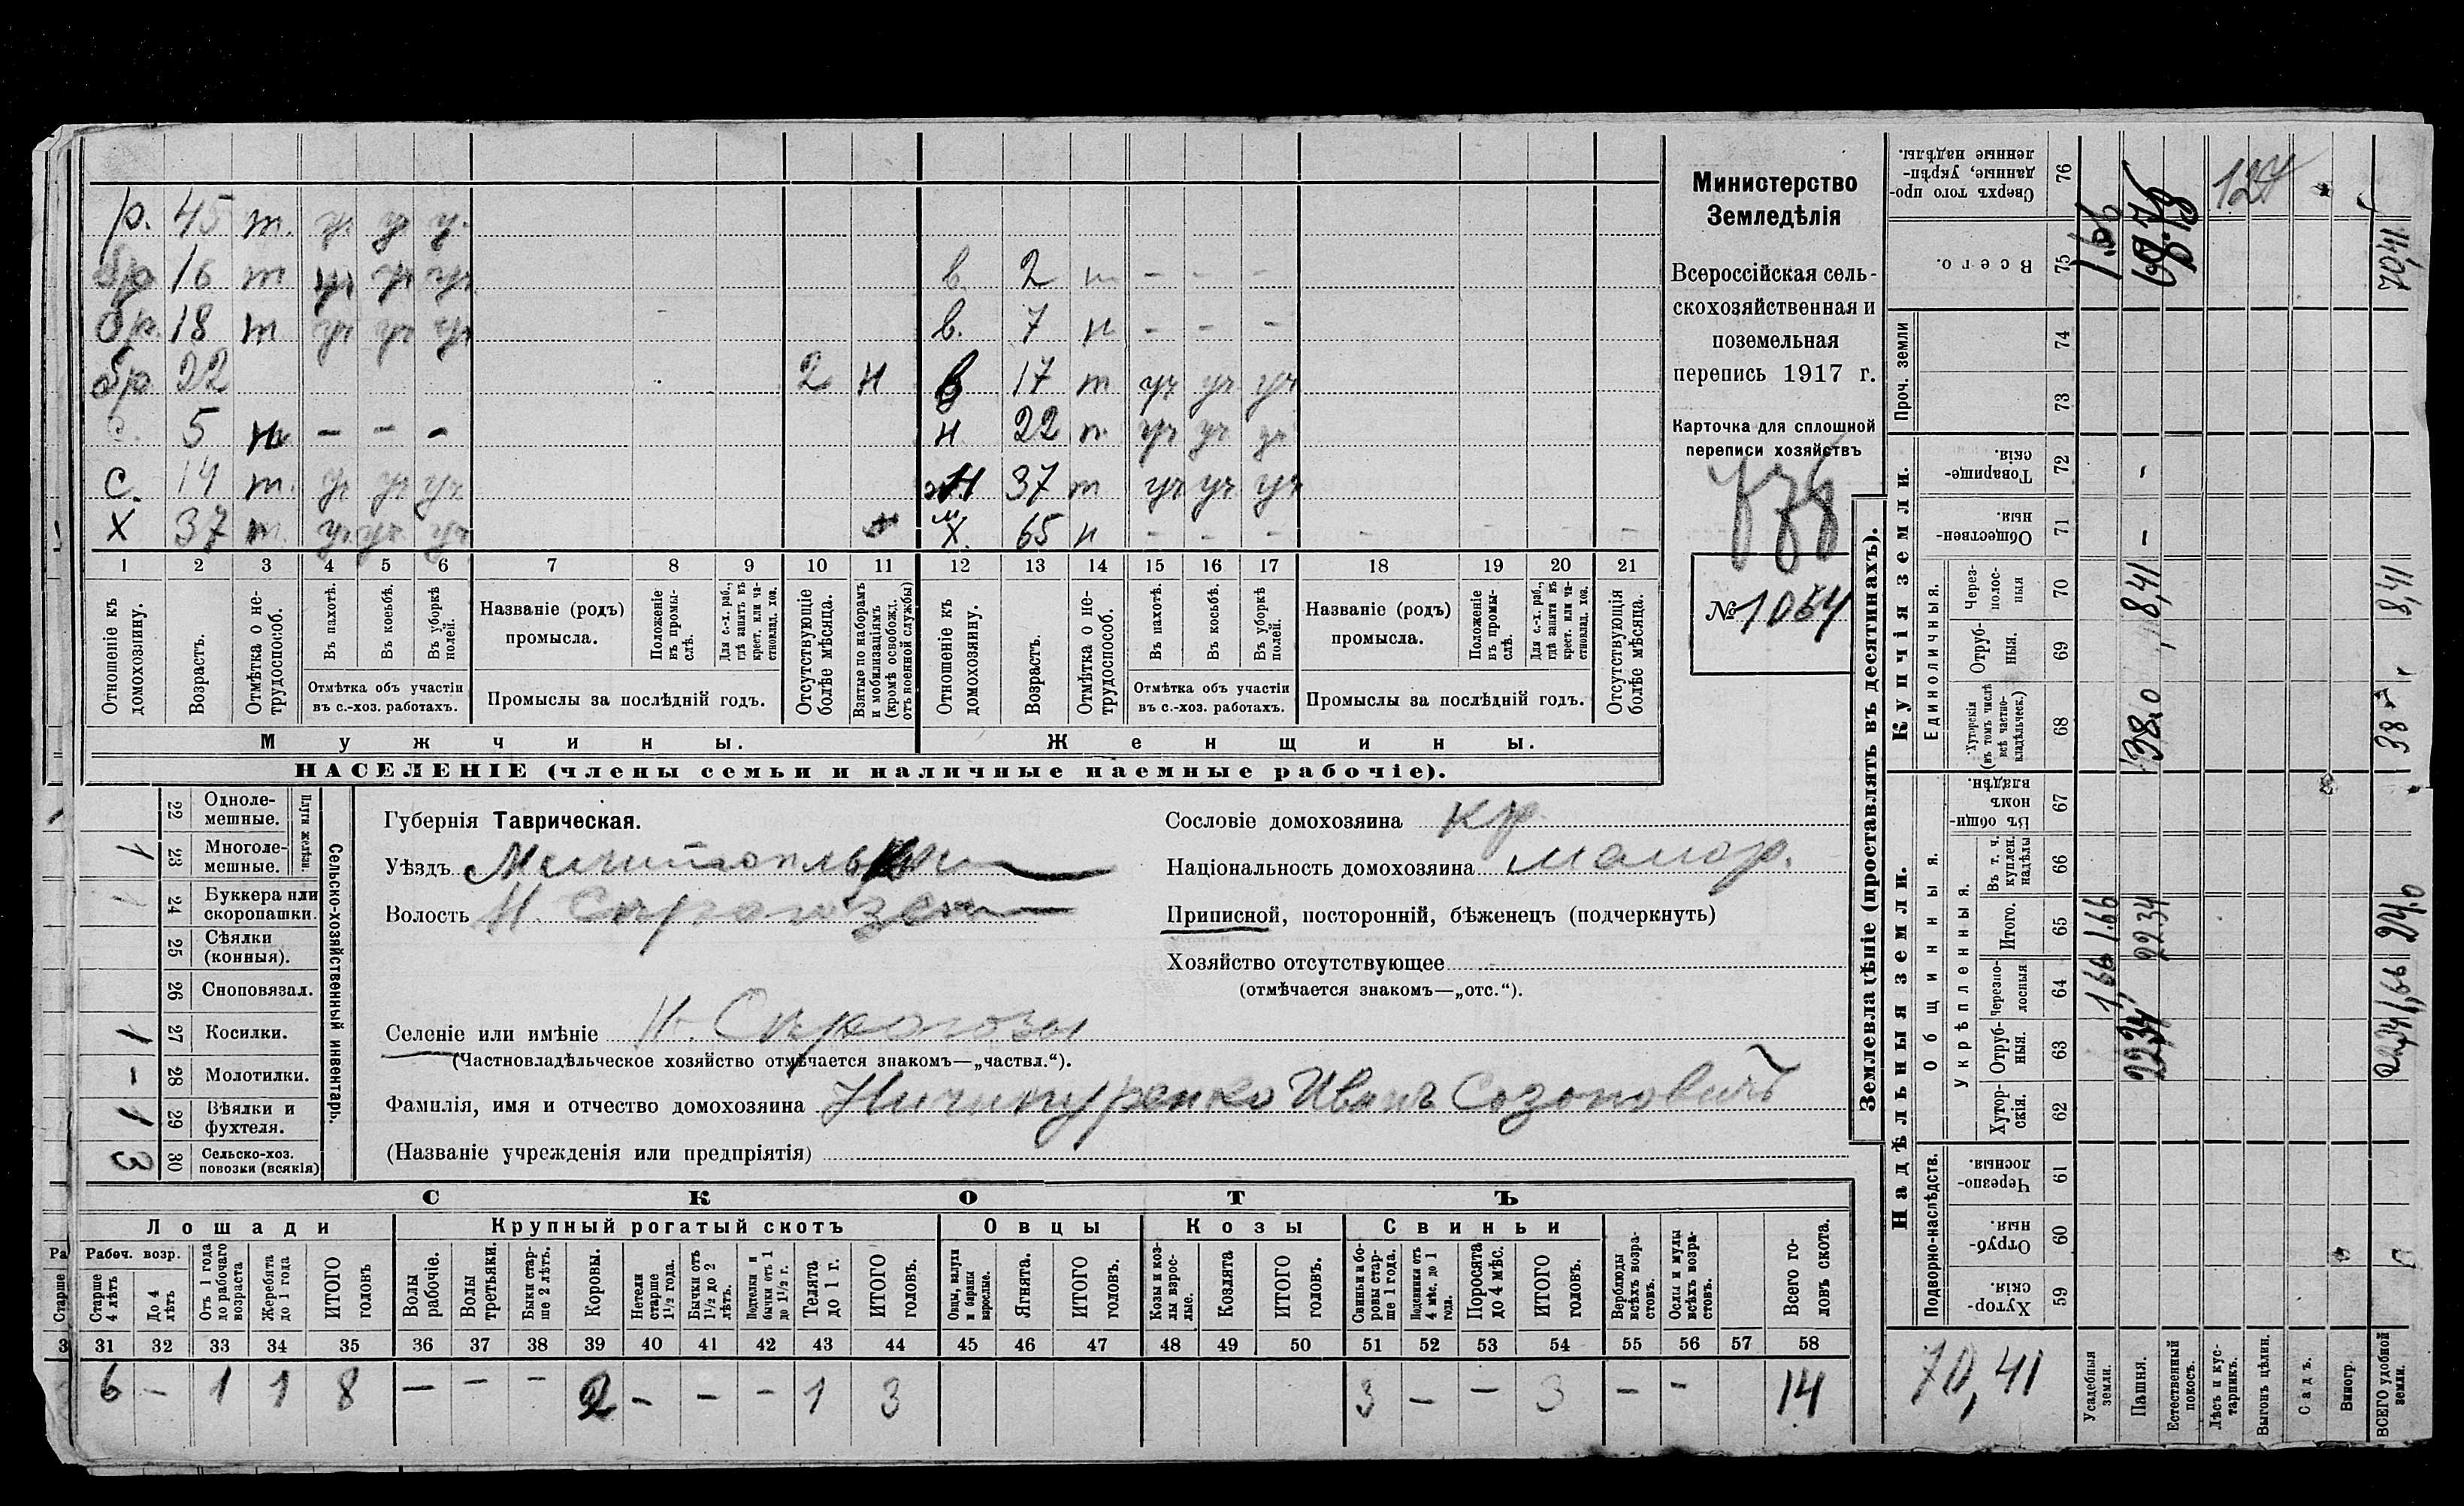 р. 45 т. уч уч уч
бр 16 т уч уч уч в. 2 н - - -
бр. 18 т уч уч уч в. 7 н - - -
бр 22 2 н в 17 т уч уч уч
с. 5 н - - - н 22 т уч уч уч
с. 14 т. уч уч уч н 37 т уч уч уч
Х 37 т. уч. уч. уч м Х. 65 н - - - - -
1 2 3 4 5 6 7 8 9 10 11 12 13 14 15 16 17 18 19 20 21
Отношеніе къ домохозяину.
Возрастъ.
Отмѣтка о не-трудоспособ.
Въ пахотѣ.
Въ косьбѣ.
Въ уборкѣ полей.
Отмѣтка объ участіи
въ с.-хоз. работахъ.
Названіе (родъ)
промысла.
Положеніе въ промы-слѣ.
Для с.-х. раб., гдѣ занятъ въ крест. или ча-стновлад. хоз.
Промыслы за послѣдній годъ.
Отсутствующіе болѣе мѣсяца.
Взятые по наборамъ и мобилизаціямъ (кромѣ освобожд. отъ военной службы)
Отношеніе къ домохозяину.
Возрастъ.
Отмѣтка о не-трудоспособ.
Въ пахотѣ.
Въ косьбѣ.
Въ уборкѣ полей.
Отмѣтка объ участіи
въ с.-хоз. работахъ.
Названіе (родъ)
промысла.
Положеніе въ промы-слѣ.
Для с.-х. раб., гдѣ занята въ крест. или ча-стновлад. хоз.
Промыслы за послѣдній годъ.
Отсутствующія болѣе мѣсяца.
Мужчины. Женщины.
НАСЕЛЕНІЕ (члены семьи и наличные наемные рабочіе).
Министерство
Земледѣлія
Всероссійская сель-
скохозяйственная и
поземельная
перепись 1917 г.
Карточка для сплошной
переписи хозяйствъ
№ 1054
22 Одноле-мешные.
23 Многоле-мешные. 1
Плуги желѣзн.
24 Буккера или скоропашки. 1
25 Сѣялки (конныя).
26 Сноповязал.
27 Косилки. 1
28 Молотилки. -
29 Вѣялки и фухтеля. 1
30 Сельско-хоз. повозки (всякія) 3
Сельско-хозяйственный инвентарь.
Губернія Таврическая.
Уѣздъ Мелитопльскій
Волость Н. Сѣрогозская
Селеніе или имѣніе Н. Сѣрогозы
(Частновладѣльческое хозяйство отмѣчается знакомъ—„частвл.“).
Фамилія, имя и отчество домохозяина Ничипуренко Иванъ Созоновичъ
(Названіе учрежденія или предпріятія)
Сословіе домохозяина кр.
Національность домохозяина малор.
Приписной, посторонній, бѣженец (подчеркнуть)
Хозяйство отсутствующее
(отмѣчается знакомъ—„отс.“).
СКОТЪ
Лошади Крупный рогатый скотъ Овцы Козы Свиньи
Рабоч. возр.
Старше 4 лѣтъ
До 4 лѣтъ
Отъ 1 года до рабочаго возраста
Жеребята до 1 года
ИТОГО головъ
Волы рабочіе.
Волы третьяки.
Быки стар-ше 2 лѣтъ.
Коровы.
Нетели старше 1½ года.
Бычки отъ 1½ до 2 лѣтъ.
Подтелки и бычки отъ 1 до 1½ г.
Телята до 1 г.
ИТОГО головъ.
Овцы, валухи и бараны взрослые.
Ягнята.
ИТОГО головъ.
Козы и коз-лы взрос-лые.
Козлята
ИТОГО головъ.
Свиньи и бо-ровы стар-ше 1 года.
Подсвинки отъ 4 мѣс. до 1 года.
Поросята до 4 мѣс.
ИТОГО головъ.
Верблюды всѣхъ возра-стовъ.
Ослы и мулы всѣхъ возра-стовъ.
Всего го-ловъ скота.
31 32 33 34 35 36 37 38 39 40 41 42 43 44 45 46 47 48 49 50 51 52 53 54 55 56 57 58
6 - 1 1 8 - - - 2 - - - 1 3 3 - - 3 - - 14
Землевладѣніе (проставлять въ десятинахъ).
Купчія земли.
Надѣльныя земли.
Сверхъ того про-данные, укрѣп-ленные надѣлы. 76
Всего. 75 1.66 70,41
Проч. земли 74 73
Товарище-скія. 72 -
Обществен-ныя. 71 -
Единоличныя.
Через-полос-ныя 70 8,41 8,41
Отруб-ныя. 69
Хуторскія (въ томъ числѣ всѣ частно-владѣльческ.) 68 38,0 38
Въ общи-номъ владѣн. 67
Общинныя.
Укрѣпленныя.
Въ т. ч. куплен. надѣлы 66
Итого. 65 1.66 22.34 24.0
Черезпо-лосныя 64 1,66 1,66
Отруб-ныя. 63 22,34 22,34
Хутор-скія. 62
Подворно-наслѣдств.
Черезпо-лосныя. 61
Отруб-ныя. 60
Хутор-скія 59
124
70,41
Усадебныя земли.
Пашня.
Естественный покосъ.
Лѣсъ и кус-тарникъ.
Выгонъ цѣлин.
Садъ.
Виногр.
ВСЕГО удобной земли.